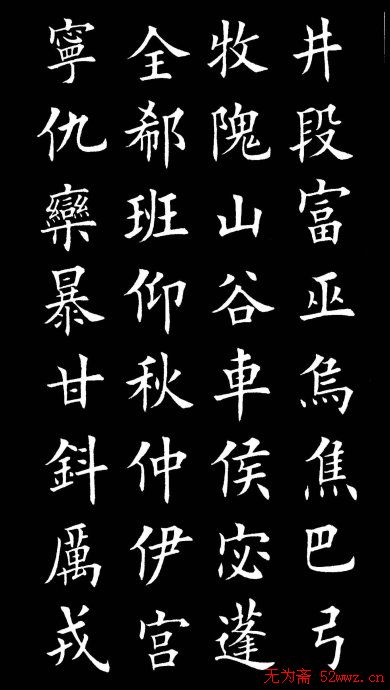 井段富巫烏焦巴弓
牧隗山谷車侯宓蓬
全郗班仰秋仲伊宫
寧仇欒暴甘鈄厲戎
无为斋 52wwz.cn